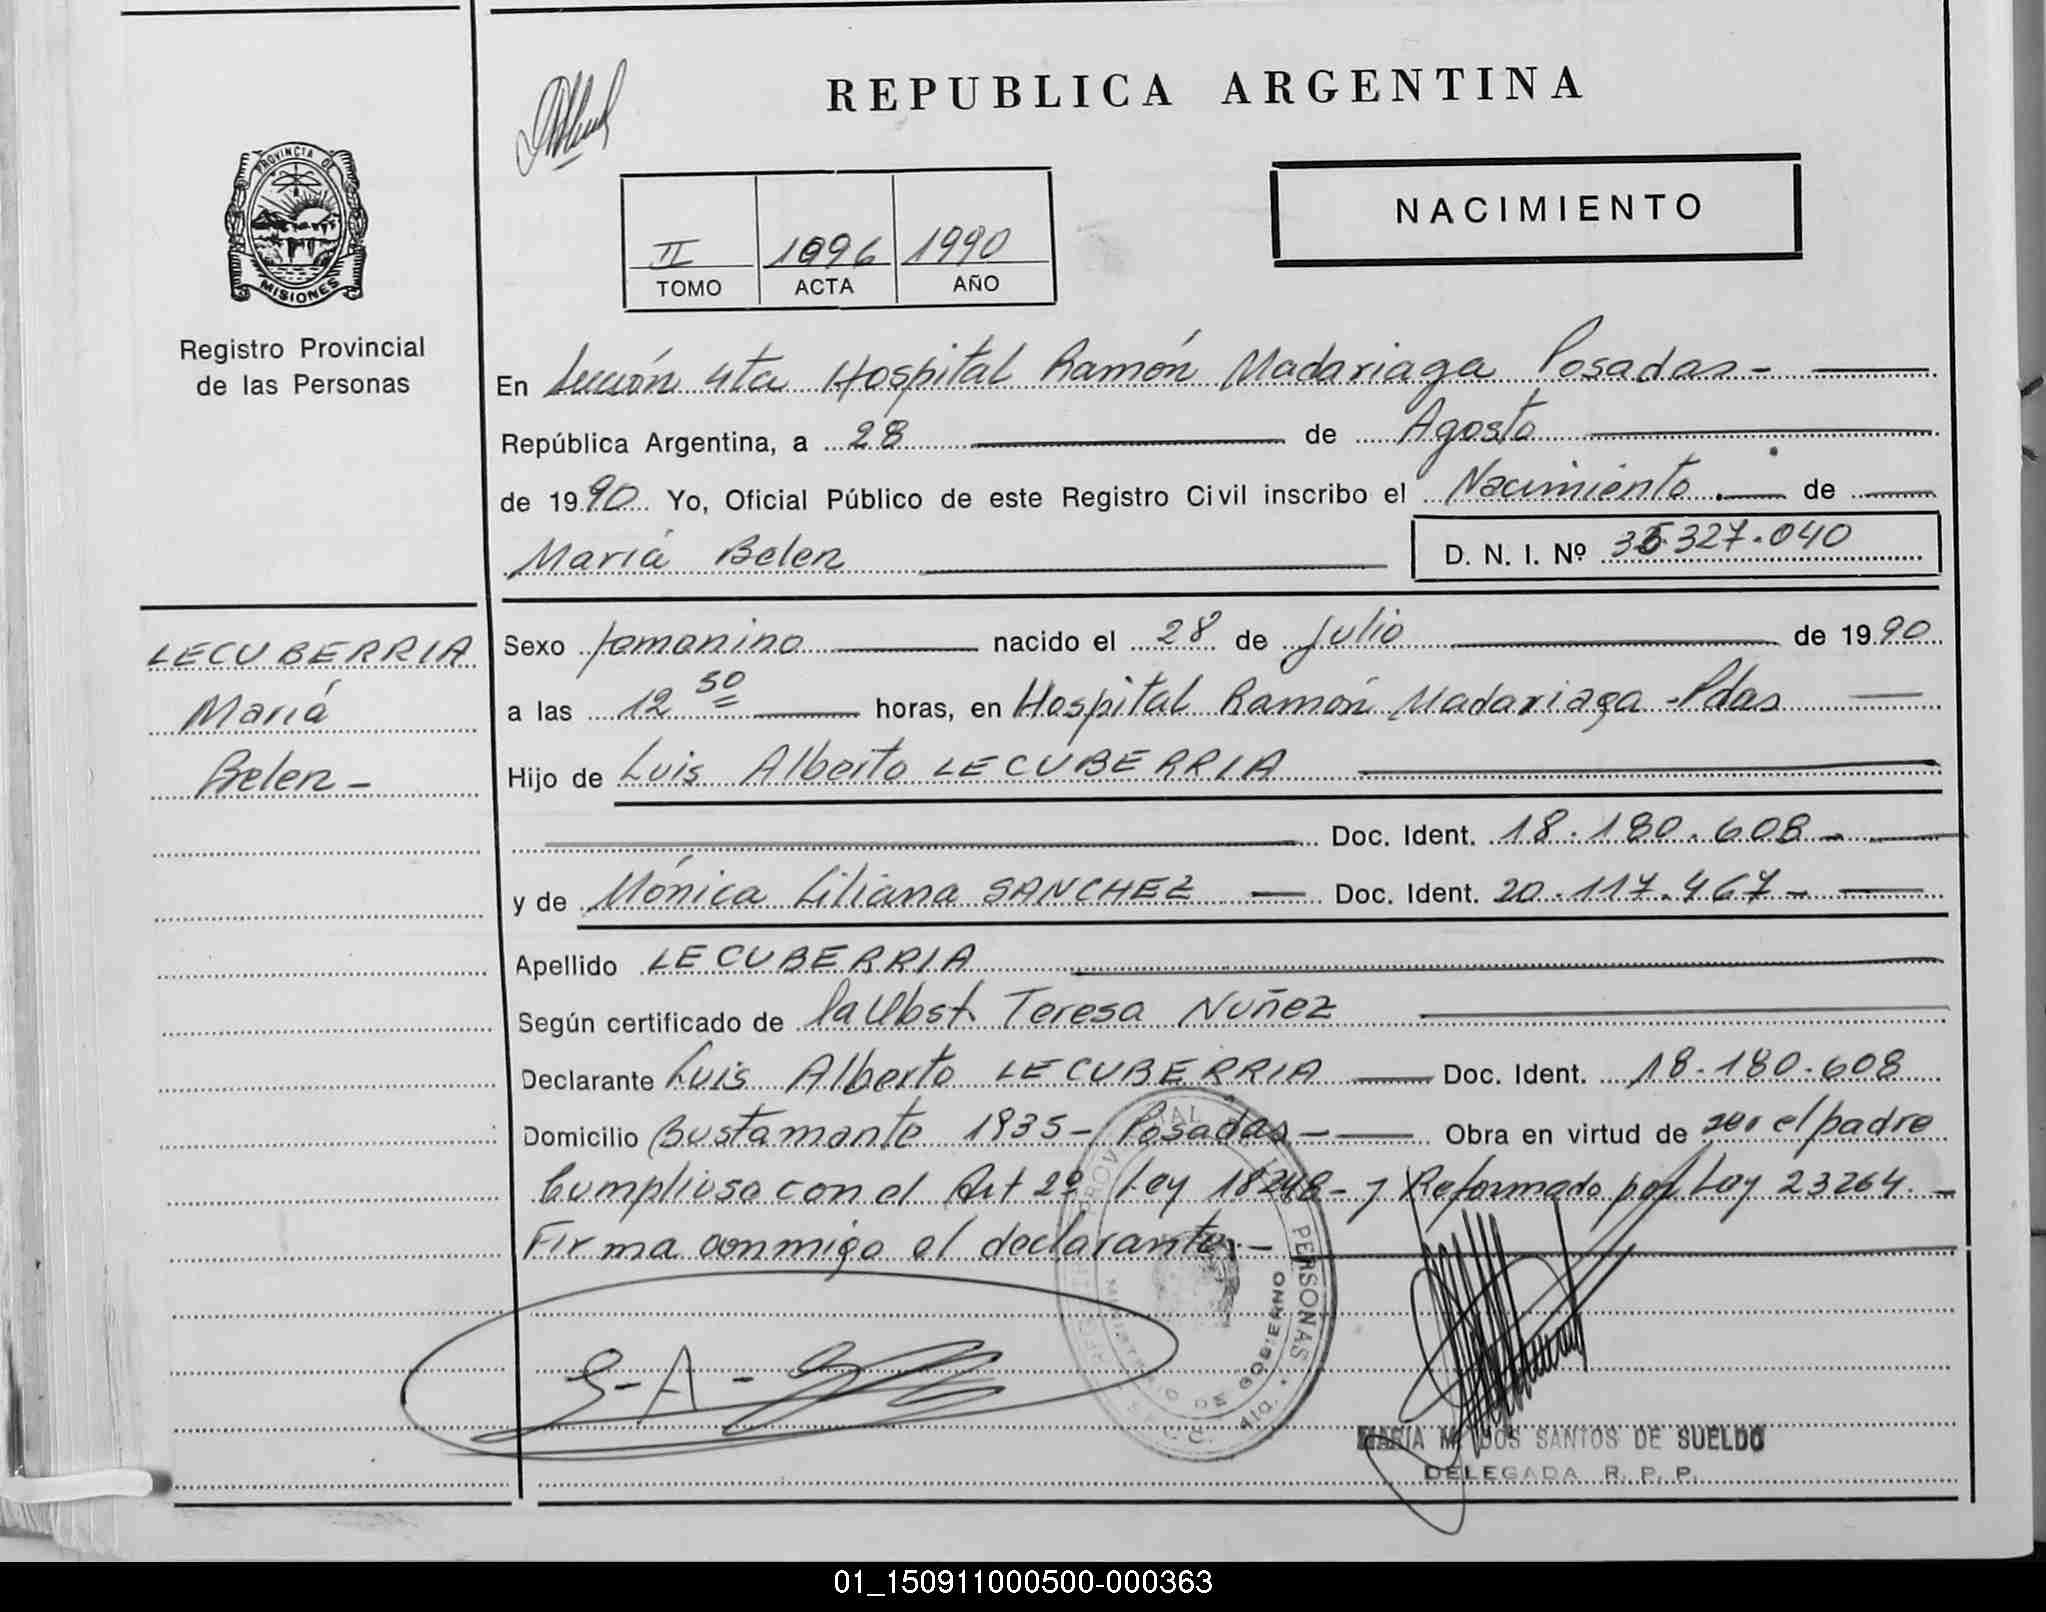 REPUBLICA ARGENTINA
PROVINCIA DE
MISIONES
Registro Provincial
de las Personas
NACIMIENTO
II 1096 1990
TOMO ACTA AÑO
En Sección 4ta Hospital Ramón Madariaga Posadas -
República Argentina, a 28 de Agosto
de 1990 Yo, Oficial Público de este Registro Civil inscribo el Nacimiento . de
María Belen D. N. I. Nº 35.327.040
LECUBERRIA
María
Belen -
Sexo femenino nacido el 28 de julio de 1990
a las 12 50 horas, en Hospital Ramón Madariaga - Pdas
Hijo de Luis Alberto LECUBERRIA
Doc. Ident. 18.180.608 -
y de Mónica Liliana SANCHEZ Doc. Ident. 20.117.467 -
Apellido LECUBERRIA
Según certificado de la Obst. Teresa Nuñez
Declarante Luis Alberto LECUBERRIA Doc. Ident. 18.180.608
Domicilio Bustamante 1935 - Posadas - Obra en virtud de ser el padre
Cumpliose con el Art 2º Ley 18248 - y Reformado por Ley 23264. -
Firma conmigo el declarante. -
PERSONAS
MINISTERIO DE GOBIERNO
4ta.
MARIA M. DOS SANTOS DE SUELDO
DELEGADA R. P. P.
01_150911000500-000363